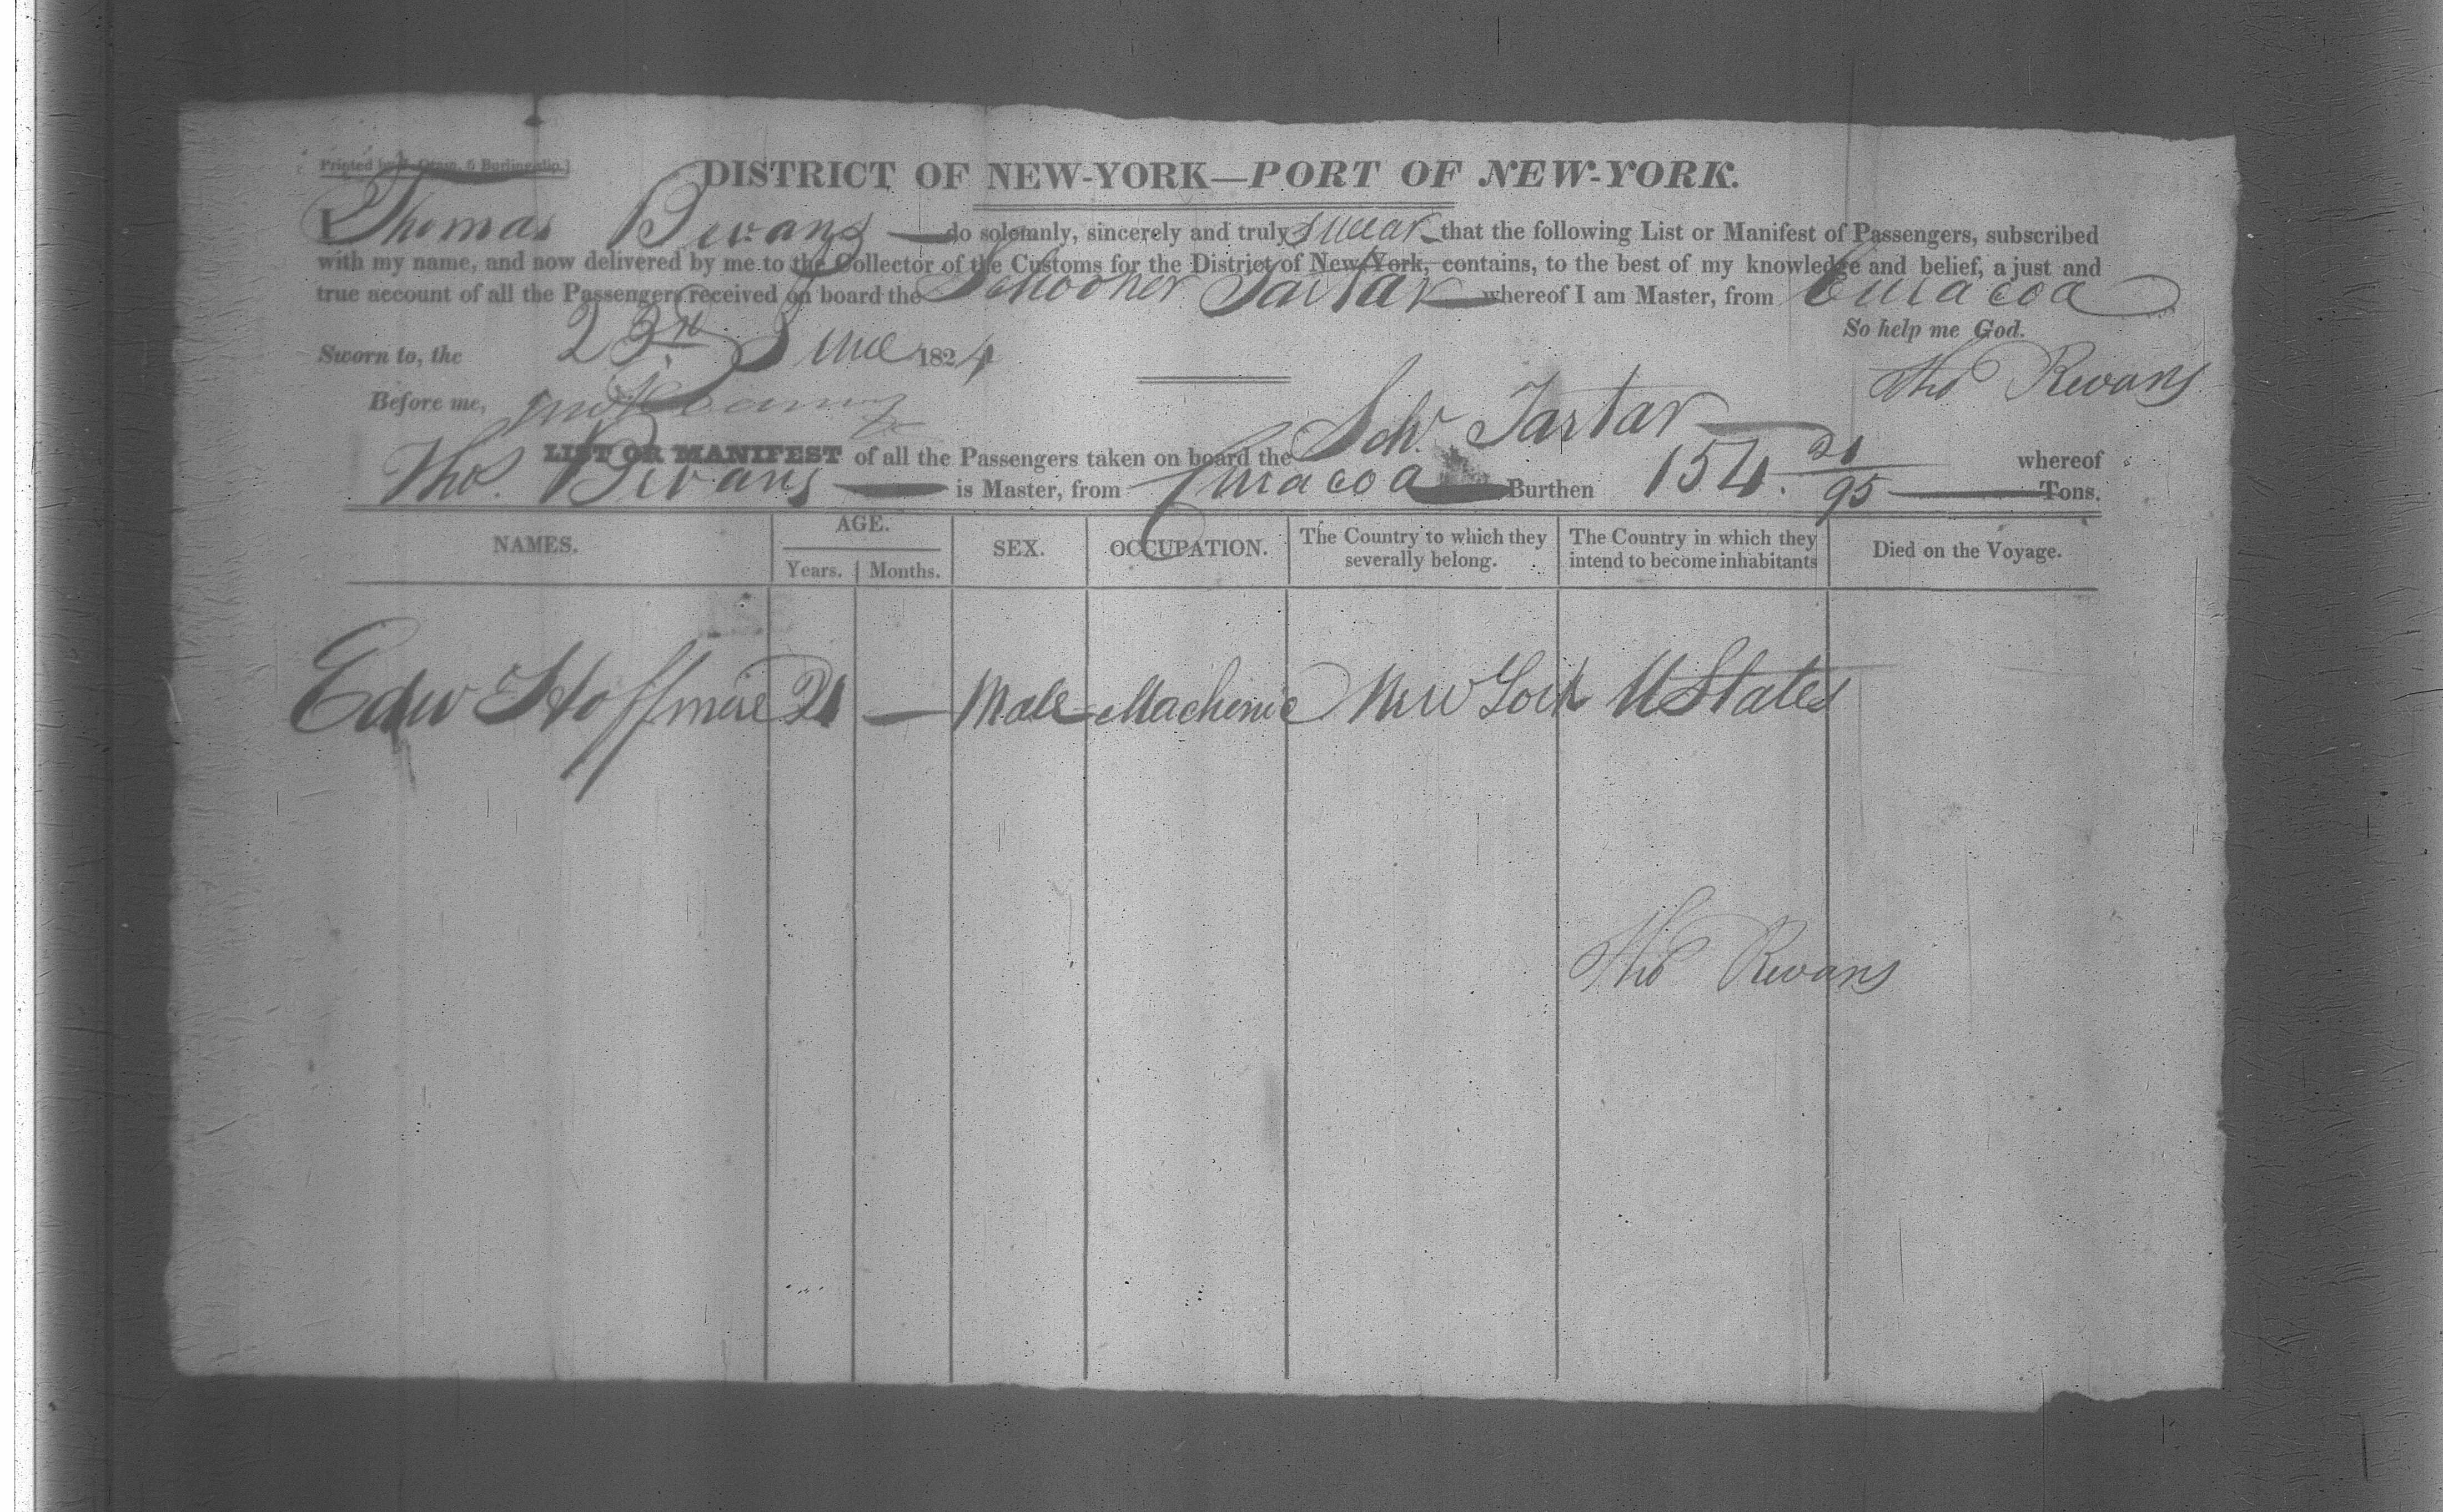 DISTRICT OF NEW-YORK—PORT OF NEW-YORK.
I Thomas Bevans do solemnly, sincerely and truly swear that the following List or Manifest of Passengers, subscribed
with my name, and now delivered by me to the Collector of the Customs for the District of New York, contains, to the best of my knowledge and belief, a just and
true account of all the Passengers received on board the Schooner Tartar whereof I am Master, from Curacoa
So help me God.
Sworn to, the 23rd June 1824
Tho Bevans
Before me,
LIST OR MANIFEST of all the Passengers taken on board the Schr Tartar whereof
Tho. Bevans is Master, from Curacoa Burthen 154. 21/95 Tons.
NAMES. AGE. SEX. OCCUPATION. The Country to which they severally belong. The Country in which they intend to become inhabitants Died on the Voyage.
Years. Months.
Edw Hoffmire 21 — Male Machenic New York U States
Tho Bevans